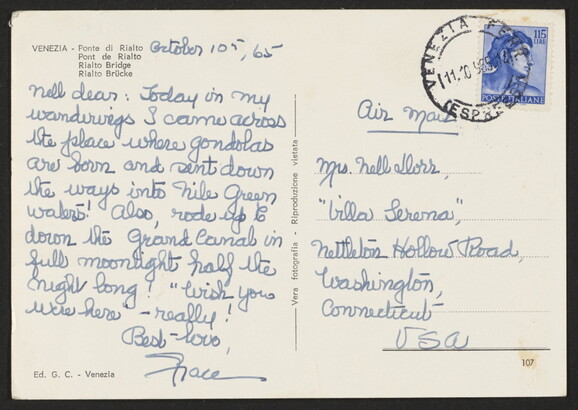 VENEZIA - Ponte di Rialto
Pont de Rialto
Rialto Bridge
Rialto Brücke
October 10th, 65
Nell dear: Today in my
wanderings I came across
the place where gondolas
are born and sent down
the ways into Nile Green
water! Also, rode up &
down the Grand Canal in
full moonlight half the
night long! "Wish you
were here" - really!
Best-love,
Grace
Ed. G. C. - Venezia
Vera fotografia - Riproduzione vietata
115
LIRE
POSTE ITALIANE
VENEZIA
11.10
(ESPR
Air Mail
Mrs. Nell Dorr,
"Villa Serena",
Nettleton Hollow Road,
Washington,
Connecticut
USA
107